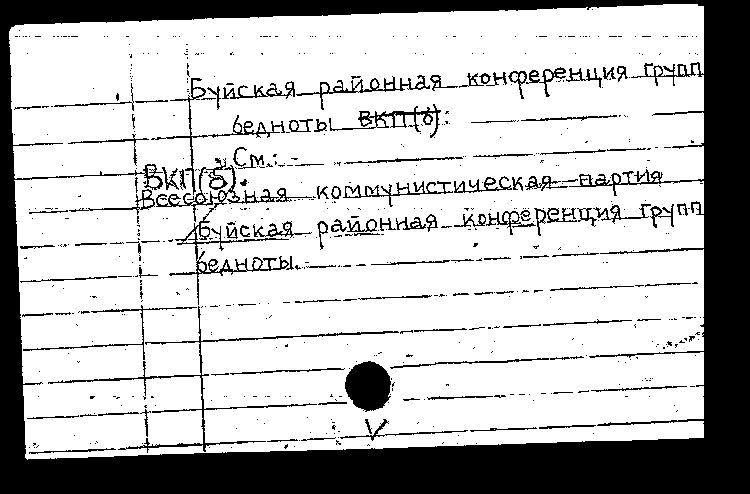 Буйская районная конференция групп
бедноты ВКП(б):
См.:
ВКП(б).
Всесоюзная коммунистическая партия
Буйская районная конференция групп
бедноты.